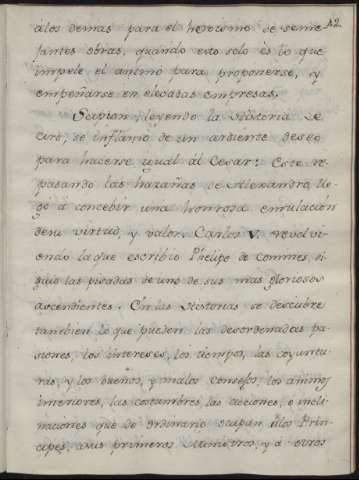 42
álos demas para el heroismo de seme
jantes obras, quando esto solo és lo que
impele el animo para proponerse, y
empeñarse en elevadas empresas.
Scipion, leyendo la Historia de
Ciro, se inflamó de un ardiente deseo
para hacerse ygual ál Cesar: Este re
pasando las hazañas de Alexandro, lle
gó á concebir una honrosa emulación
desu virtud, y valor. Carlos V. revolvi
endo la que escribio Phelipe de Commes, si
guio las pisadas de uno de sus mas gloriosos
ascendientes. En las Historias se descubre
tambien lo que pueden las desordenadas pa
siones, los intereses, los tiempos, las coyuntu
ras, y los buenos, y malos consejos, los animos
interiores, las costumbres, las acciones, e incli
naciones que de ordinario ocupan álos Prin
cipes, asus primeros Ministros, y á otros